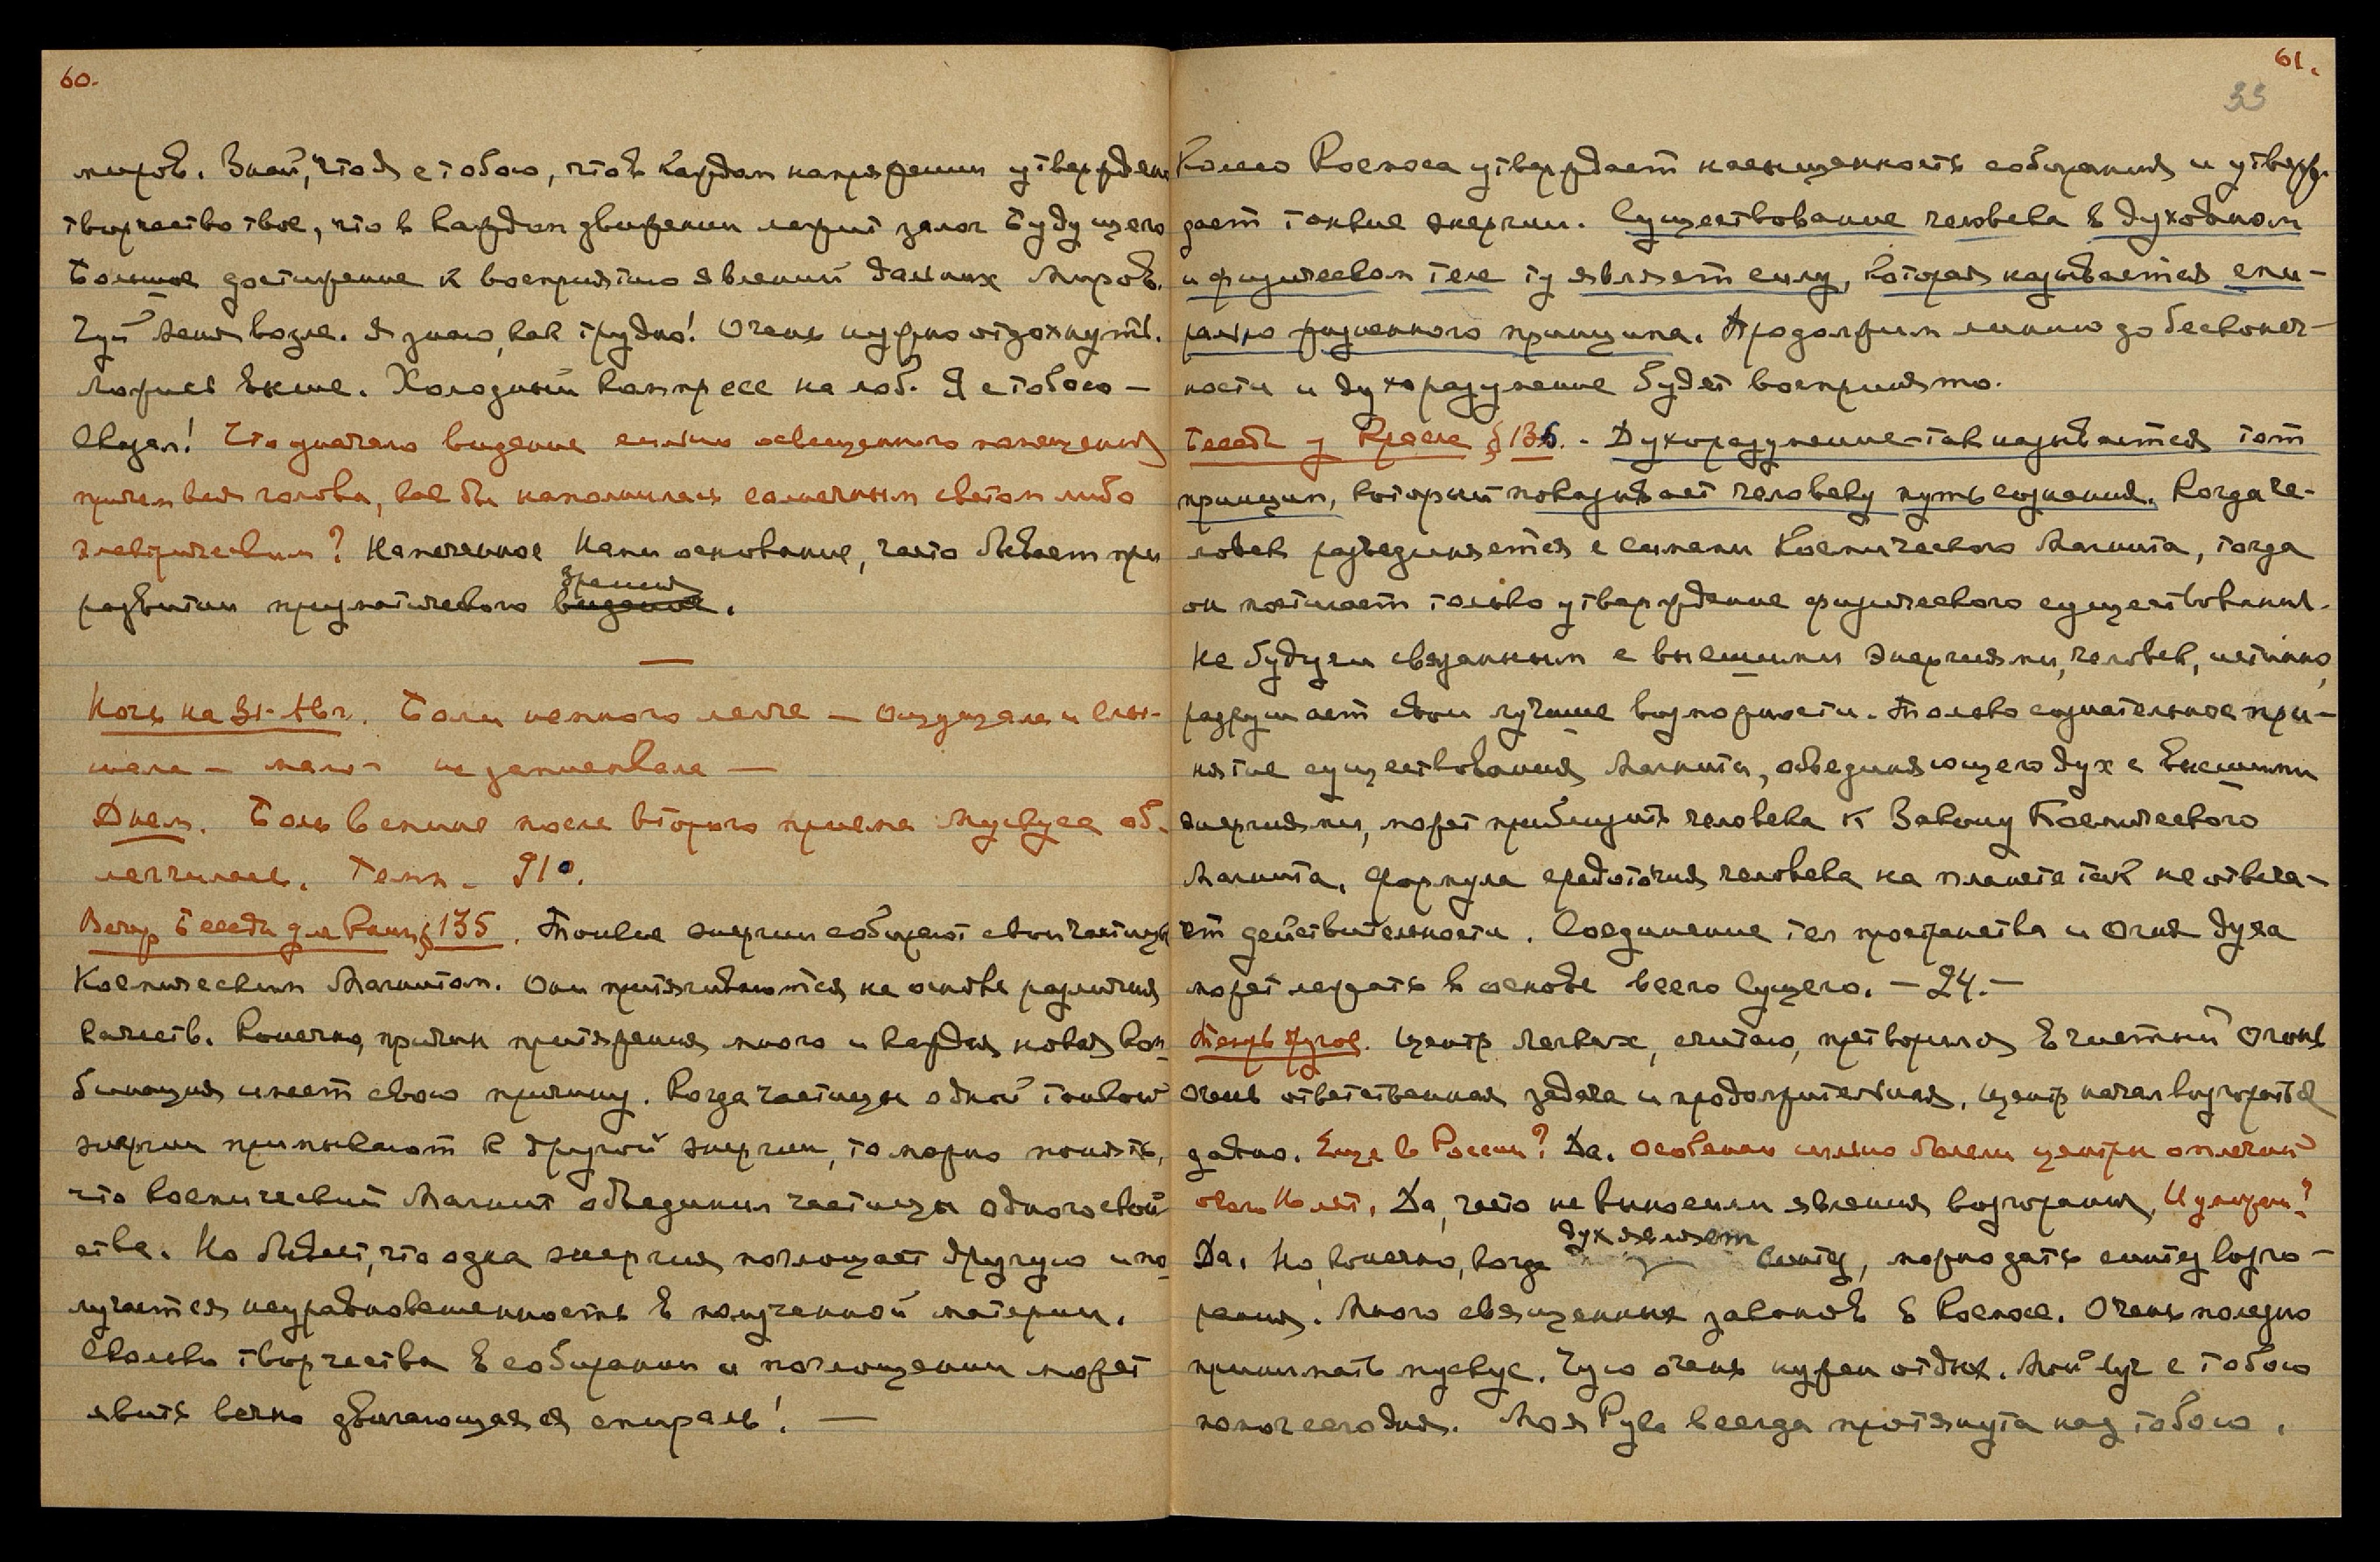 60.
миров. Знай, что Я с тобою, что в каждом напряжении утверждено
творчество твое, что в каждом движении лежит залог будущего
Большое достижение к восприятию явлений дальних миров.
Чуй меня возле. Я знаю, как трудно! Очень нужно отдохнуть.
Ложись выше. Холодный компресс на лоб. Я с тобою —
Сказал! Что значало видение сильно освещенного помещения
причем вся голова, как бы наполнилась солнечным светом либо
электрическим? Намеченное Нами основание, часто бывает при
развитии призматического видения зрения.
Ночь на 31. Авг. Боли немного легче — Ощущала и слы-
шала — мало и не записывала —
Днем. Боль в спине после второго приема Мускуса об-
легчилась. Темп. 91°.
Вечер Беседы для Книги § 135. Тонкие энергии собирают свои частицы
Космическим Магнитом. Они притягиваются на основе различия
качеств. Конечно, причин притяжения много и каждая новая ком-
бинация имеет свою причину. Когда частицы одной тонкой
энергии примыкают к другой энергии, то можно понять,
что Космический Магнит объединил частицы одного свой-
ства. Но бывает, что одна энергия поглощает другую и по-
лучается неуравновешенность в полученной материи.
Сколько творчества в собирании и поглощении может
явить вечно двигающаяся спираль! —
61.
33
Колесо Космоса утверждает насыщенность собирания и утверж-
дает тонкие энергии. Существование человека в духовном
и физическом теле ту являет силу, которая называется спи-
ралью жизненного принципа. Продолжим линию до бесконеч-
ности и духоразумение будет воспринято.
Беседы у Кресла § 136. - Духоразумение - так называется тот
принцип, который показывает человеку путь сознания. Когда че-
ловек разъединяется с силами Космического Магнита, тогда
он постигает только утверждение физического существования.
Не будучи связанным с высшими энергиями, человек, истинно,
разрушает свои лучшие возможности. Только сознательное при-
нятие существования Магнита, объединяющего дух с высшими
энергиями, может приблизить человека к Закону Космического
Магнита. Формула средоточия человека на планете так не отвеча-
ет действительности. Соединение тел пространства и Огня духа
может лежать в основе всего Сущего. — 24. —
Теперь другое. Центр Легких, считаю, претворился в чистый Огонь
Очень ответственная задача и продолжительная. Центр начал возгораться
давно. Еще в России? Да. Особенно сильно болели центры оплечий
около 10 лет. Да, часто не выносили явления возгорания. И умирали?
Да. Но, конечно, когда дух являет силу, можно дать силу возго-
рания. Много священных законов в Космосе. Очень полезно
принимать мускус. Чую очень нужен отдых. Мой луч с тобою
помог сегодня. Моя Рука всегда протянута над тобою.